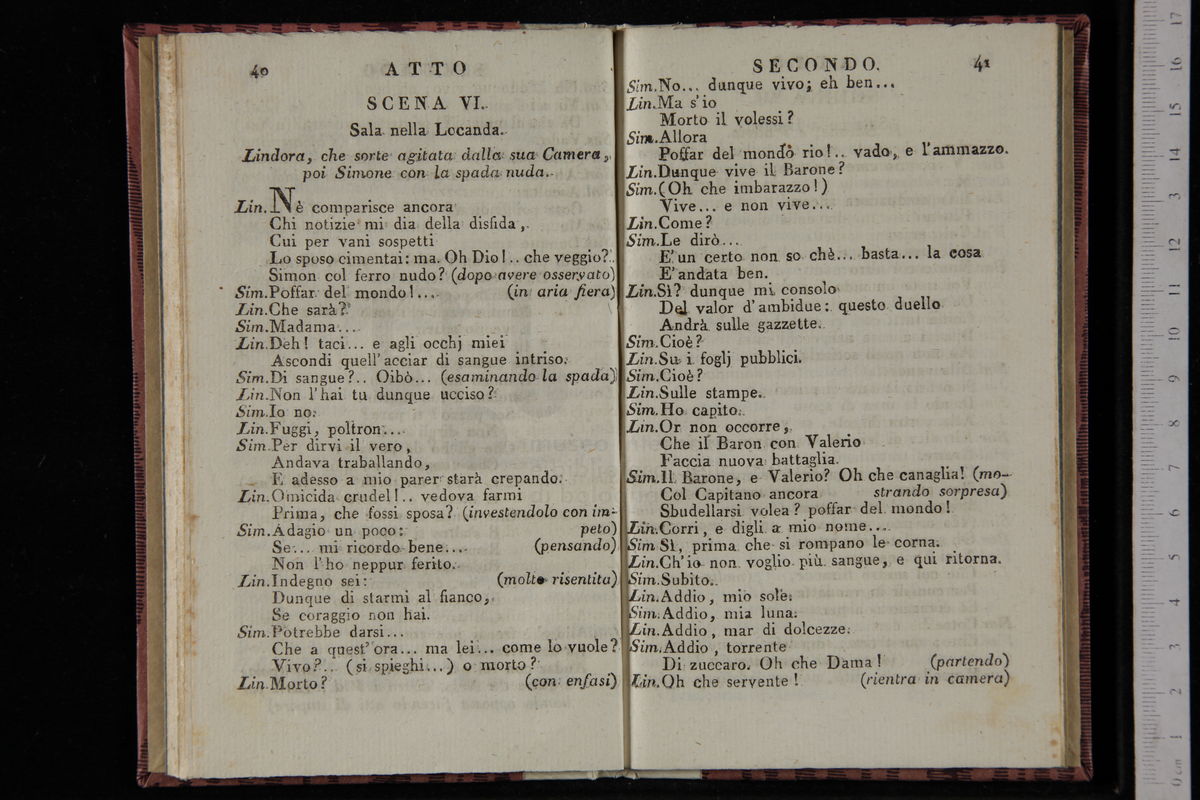 40 ATTO
SCENA VI.
Sala nella Locanda.
Lindora, che sorte agitata dalla sua Camera,
poi Simone con la spada nuda.
Lin. Nè comparisce ancora
Chi notizie mi dia della disfida,
Cui per vani sospetti
Lo sposo cimentai: ma. Oh Dio!.. che veggio?
Simon col ferro nudo? (dopo avere osservato)
Sim. Poffar del mondo!... (in aria fiera)
Lin. Che sarà?
Sim. Madama...
Lin. Deh! taci... e agli occhj miei
Ascondi quell'acciar di sangue intriso.
Sim. Di sangue?.. Oibò... (esaminando la spada)
Lin. Non l'hai tu dunque ucciso?
Sim. Io no.
Lin. Fuggi, poltron...
Sim. Per dirvi il vero,
Andava traballando,
E adesso a mio parer starà crepando.
Lin. Omicida crudel!.. vedova farmi
Prima, che fossi sposa? (investendolo con im-
Sim. Adagio un poco: peto)
Se... mi ricordo bene... (pensando)
Non l'ho neppur ferito.
Lin. Indegno sei: (molto risentita)
Dunque di starmi al fianco,
Se coraggio non hai.
Sim. Potrebbe darsi...
Che a quest'ora... ma lei... come lo vuole?
Vivo?.. (si spieghi...) o morto?
Lin. Morto? (con enfasi)
SECONDO. 41
Sim. No... dunque vivo; eh ben...
Lin. Ma s'io
Morto il volessi?
Sim. Allora
Poffar del mondo rio!.. vado, e l'ammazzo.
Lin. Dunque vive il Barone?
Sim. (Oh che imbarazzo!)
Vive... e non vive...
Lin. Come?
Sim. Le dirò...
E' un certo non so chè... basta... la cosa
E' andata ben.
Lin. Sì? dunque mi consolo
Del valor d'ambidue: questo duello
Andrà sulle gazzette.
Sim. Cioè?
Lin. Su i foglj pubblici.
Sim. Cioè?
Lin. Sulle stampe.
Sim. Ho capito.
Lin. Or non occorre,
Che il Baron con Valerio
Faccia nuova battaglia.
Sim. Il Barone, e Valerio? Oh che canaglia! (mo-
Col Capitano ancora strando sorpresa)
Sbudellarsi volea? poffar del mondo!
Lin. Corri, e digli a mio nome...
Sim Sì, prima che si rompano le corna.
Lin. Ch'io non voglio più sangue, e qui ritorna.
Sim. Subito.
Lin. Addio, mio sole.
Sim. Addio, mia luna.
Lin. Addio, mar di dolcezze.
Sim. Addio, torrente
Di zuccaro. Oh che Dama! (partendo)
Lin. Oh che servente! (rientra in camera)
0 cm 1 2 3 4 5 6 7 8 9 10 11 12 13 14 15 16 17